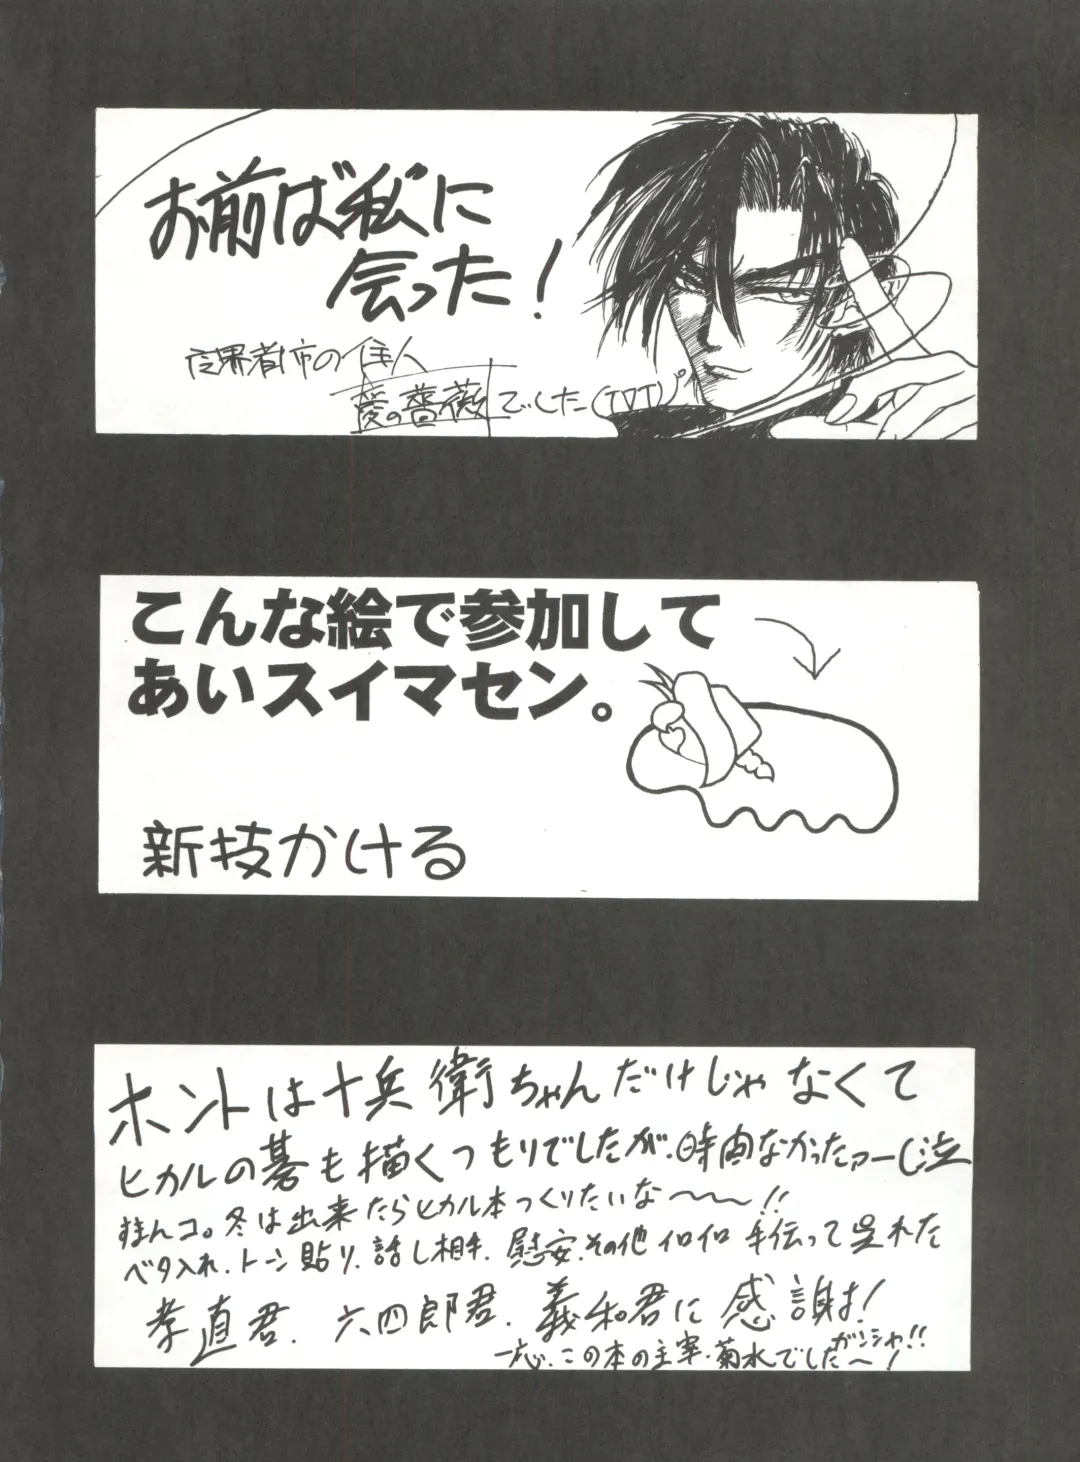 お前は私に
会った!
住人
愛の薔薇でした(TVT)
こんな絵で参加して
あいスイマセン。
新技かける
ホントは十兵衛ちゃんだけじゃなくて
ヒカルの碁も描くつもりでしたが、時間なかったァー(泣
すまんコ。冬は出来たらヒカル本つくりたいな〜〜!!
ベタ入れ、トーン貼り、話し相手、慰安、その他イロイロ手伝って呉れた
孝直君、六四郎君、義和君に感謝だ!
ガンシャ!!
一応、この本の主宰・菊水でした〜!